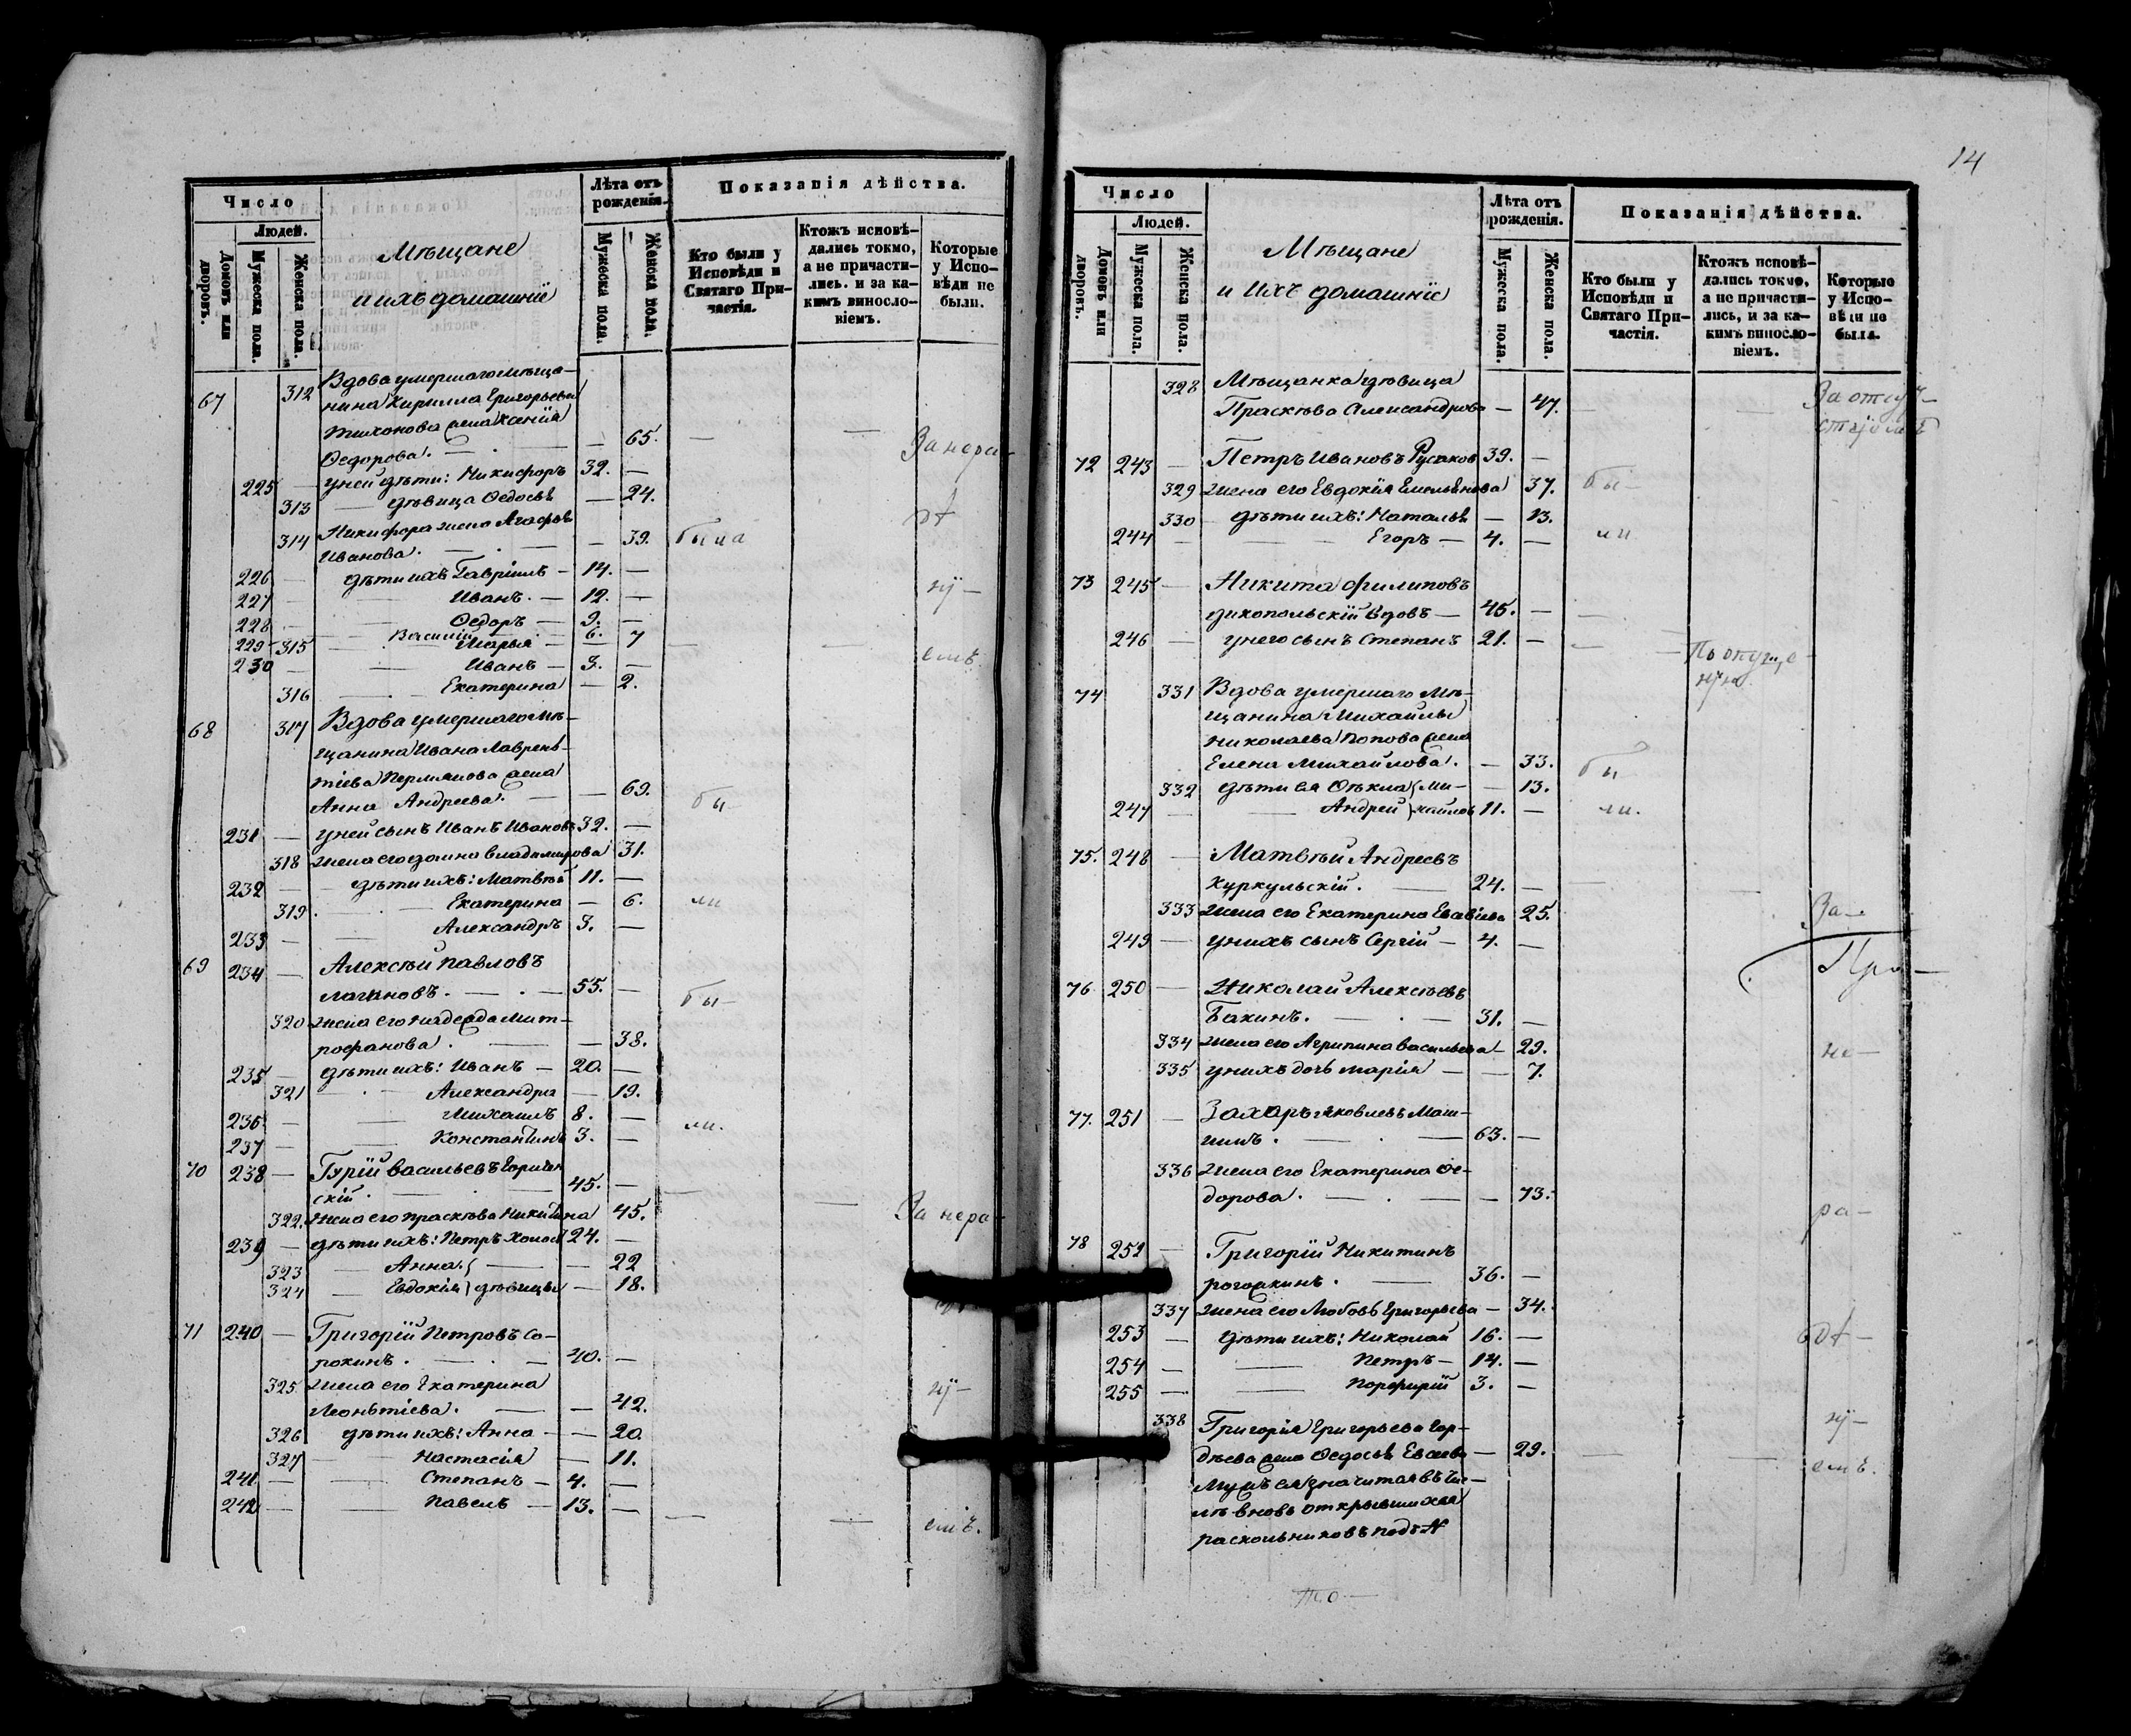 Число
Людей.
Домовъ или дворовъ.
Мужеска пола.
Женска пола.
Мѣщане
и ихъ домашніе
Лѣта отъ рожденія.
Мужеска пола.
Женска пола.
Показанія дѣйства.
Кто были у Исповѣди и Святаго Причастія.
Ктожъ исповѣдались токмо, а не причастились. и за какимъ винословіемъ.
Которые у Исповѣди не были.
67 312 Вдова умершаго мѣща-
нина Кирилла Григорьева
Тихонова жена Ксенія
Ѳедорова. — 65. За нера-
225 — у ней дѣти: Никифоръ 32. —
313 — дѣвица Ѳедосья — 24.
314 Никифора жена Агафья
Иванова. — 39. была
226 — дѣти ихъ Гавріилъ — 14. —
227 — Иванъ. — 12. — нi-
228 — Ѳедоръ — 9. —
229 Василій 6.
315 Марья — 7
230 — Иванъ — 3. — емъ.
316 Екатерина — 2.
68 317 Вдова умершаго мѣ-
щанина Ивана Лаврень-
тіева Пермякова жена
Анна Андреева. — 69. бы-
231 — у ней сынъ Иванъ Ивановъ 32. —
318 жена его Домна Владимирова 31.
232 — дѣти ихъ: Матвѣй 11. —
319. Екатерина — 6. ли
233 — Александръ 3. —
69 234 — Алексѣй Павловъ
Лагановъ. — 55. — бы-
320 жена его Надежда Мит-
рофанова. — 38.
235 — дѣти ихъ: Иванъ — 20. —
321 Александра — 19.
236 — Михаилъ 8. — ли.
237 — Константинъ 3. —
70 238 — Гурій Васильевъ
скій. — 45. —
322. Жена его Прасковья Никитина 45. За нера-
239 — дѣти ихъ: Петръ холост 24. —
323 Анна — 22
324 Евдокія дѣвицы — 18.
71 240 — Григорій Петровъ Со-
рокинъ. — 40. —
325 жена его Екатерина
Леонтіева. — 42. нi-
326 дѣти ихъ: Анна — 20.
327 Настасія — 11.
241 — Степанъ — 4. —
242 — Павелъ — 13. —
емъ.
14
Число
Людей.
Домовъ или дворовъ.
Мужеска пола.
Женска пола.
Мѣщане
и ихъ домашніе
Лѣта отъ рожденія.
Мужеска пола.
Женска пола.
Показанія дѣйства.
Кто были у Исповѣди и Святаго Причастія.
Ктожъ исповѣдались токмо, а не причастились, и за какимъ винословіемъ.
Которые у Исповѣди не были.
328 Мѣщанка дѣвица За отсут-
Прасковья Александрова — 47. ствіемъ
72 243 — Петръ Ивановъ Русаков 39. —
329 жена его Евдокія Емельянова 37. бы-
330 дѣти ихъ: Наталья — 13.
244 — Егоръ — 4. — ли.
73 245 — Никита Филиповъ
Дикопольскій вдовъ — 45. —
246 — у него сынъ Степанъ 21. —
По опуще-
нію
74 331 Вдова умершаго мѣ-
щанина Михайлы
Николаева Попова жена
Елена Михайлова. — 33. бы
332 дѣти ея Ѳекла Ми- — 13.
247 — Андрей хайлов 11. — ли.
75. 248 — Матвѣй Андреевъ
Куркульскій. — 24. —
333 жена его Екатерина 25. За-
249 — у нихъ сынъ Сергій — 4. —
Пра-
76 250 — Николай Алексѣевъ
Бакинъ. — 31. —
334 жена его Агрипина Васильева — 29. не-
335 у нихъ дочь Марія — 7.
77. 251 — Захаръ Яковлевъ
— 63. —
336 жена его Екатерина Ѳе-
дорова. — 73. ра-
78 252 — Григорій Никитинъ
36. —
337 жена его Любовь Григорьева — 34.
253 — дѣти ихъ: Николай 16. —
254 — Петръ — 14. —
255 — Порфирій 3. —
338 Григорія Григорьева Гор- нi-
дѣева жена Ѳедосья — 29. емъ.
Мужъ ея значится въ чис-
лѣ вновь открывшихся
раскольниковъ подъ №
то-